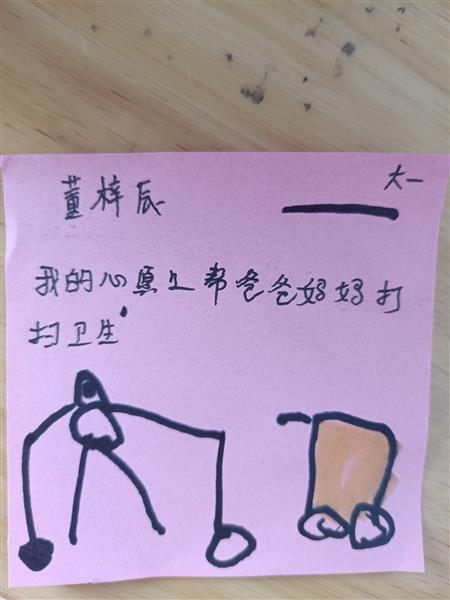 董梓辰
大一
我的心愿是帮爸爸妈妈打
扫卫生